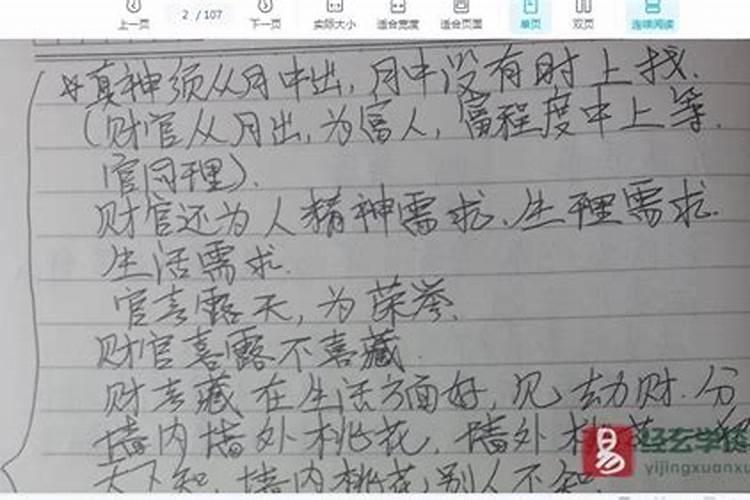 上一页 2 / 107 下一页 实际大小 适合宽度 适合页面 单页 双页 连续阅读
真神须从月中出,月中没有时上找.
(财官从月出,为富人,富程度中上等.
官同理).
财官还为人精神需求、生理需求.
生活需求.
官喜露天,为荣誉.
财官喜露不喜藏.
财喜藏在生活方面好,见劫财.分
墙内墙外桃花,墙外桃
天下知,墙内桃花,别人不知
易 经玄学
yijingxuanxu